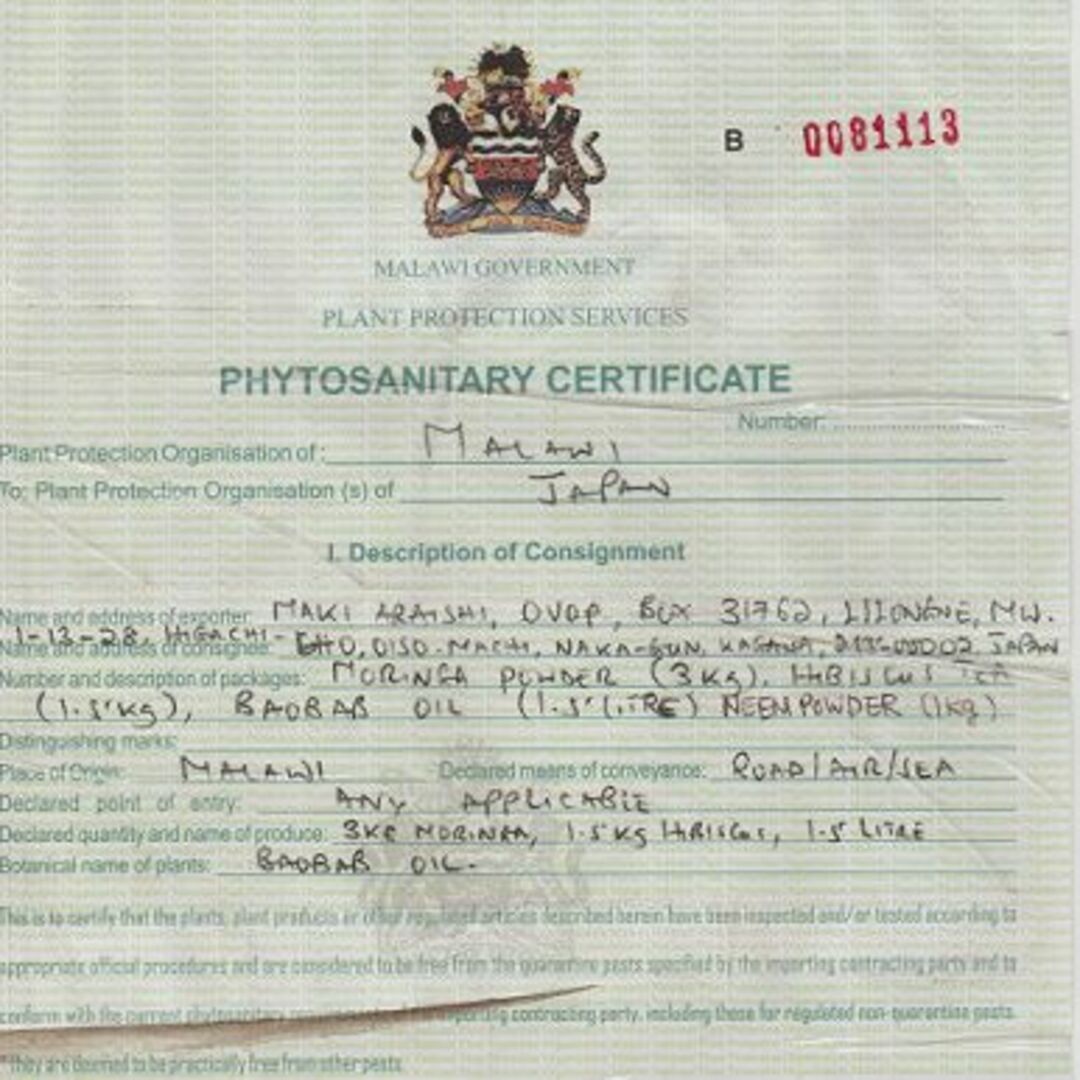 B 0081113
MALAWI GOVERNMENT
PLANT PROTECTION SERVICES
PHYTOSANITARY CERTIFICATE
Number:
Plant Protection Organisation of: MALAWI
To: Plant Protection Organisation (s) of JAPAN
I. Description of Consignment
Name and address of exporter: MAKI ARAISHI, OVOP, BOX 31762, LILONGWE, MW.
1-13-28, HIGACHI-
Name and address of consignee: OISO-MACHI, NAKA-GUN, JAPAN
Number and description of packages: MORINGA POWDER (3Kg), HIBISCUS TEA
(1.5Kg), BAOBAB OIL (1.5 LITRE) NEEM POWDER (1Kg)
Distinguishing marks:
Place of Origin: MALAWI Declared means of conveyance: ROAD/AIR/SEA
Declared point of entry: ANY APPLICABLE
Declared quantity and name of produce: 3KG MORINGA, 1.5Kg HIBISCUS, 1.5 LITRE
Botanical name of plants: BAOBAB OIL.
This is to certify that the plants, plant products or other regulated articles described herein have been inspected and/or tested according to
appropriate official procedures and are considered to be free from the quarantine pests specified by the importing contracting party and to
conform with the current phytosanitary contracting party, including those for regulated non-quarantine pests.
* They are deemed to be practically free from other pests.